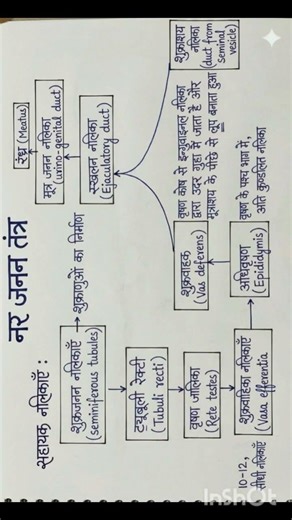 नर जनन तंत्र
सहायक नलिकाएँ :
शुक्रजनन नलिकाएँ
(seminiferous tubules)
→ शुक्राणुओं का निर्माण
ट्यूबूली रेक्टी
(Tubuli recti)
वृषण जालिका
(Rete testes)
10-12,
सीधी नलिकाएँ
शुक्रवाहिका नलिकाएँ
(Vasa efferentia)
अधिवृषण
(Epididymis)
वृषण के पश्च भाग में,
अति कुण्डलित नलिका
शुक्रवाहक
(Vas deferens)
वृषण कोष से इन्गुवाइनल नलिका
द्वारा उदर गुहा में जाता है और
मूत्राशय के पीछे से लूप बनाता हुआ
शुक्राशय
नलिका
(duct from
seminal
vesicle)
स्खलन नलिका
(Ejaculatory duct)
मूत्र जनन नलिका
(urino-genital duct)
रंध्र (Meatus)
InShot